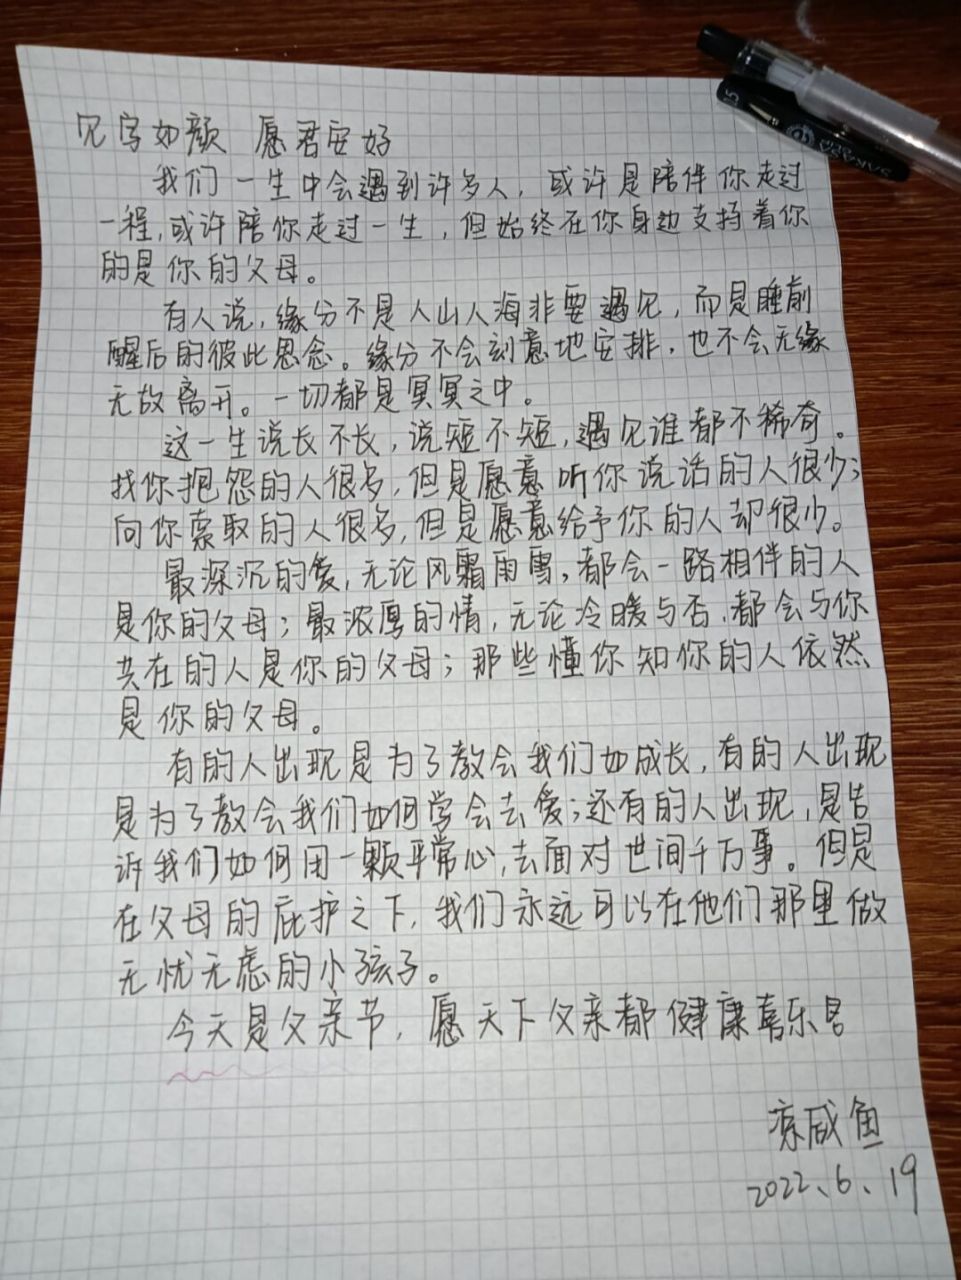 见字如颜 愿君安好
我们一生中会遇到许多人，或许是陪伴你走过
一程，或许陪你走过一生，但始终在你身边支持着你
的是你的父母。
有人说，缘分不是人山人海非要遇见，而是睡前
醒后的彼此思念。缘分不会刻意地安排，也不会无缘
无故离开。一切都是冥冥之中。
这一生说长不长，说短不短，遇见谁都不稀奇。
找你抱怨的人很多，但是愿意听你说话的人很少；
向你索取的人很多，但是愿意给予你的人却很少。
最深沉的爱，无论风霜雨雪，都会一路相伴的人
是你的父母；最浓厚的情，无论冷暖与否，都会与你
共在的人是你的父母；那些懂你知你的人依然
是你的父母。
有的人出现是为了教会我们如成长，有的人出现
是为了教会我们如何学会去爱；还有的人出现，是告
诉我们如何用一颗平常心，去面对世间千万事。但是
在父母的庇护之下，我们永远可以在他们那里做
无忧无虑的小孩子。
今天是父亲节，愿天下父亲都健康喜乐
凉咸鱼
2022、6、19
0.5
SAKURA